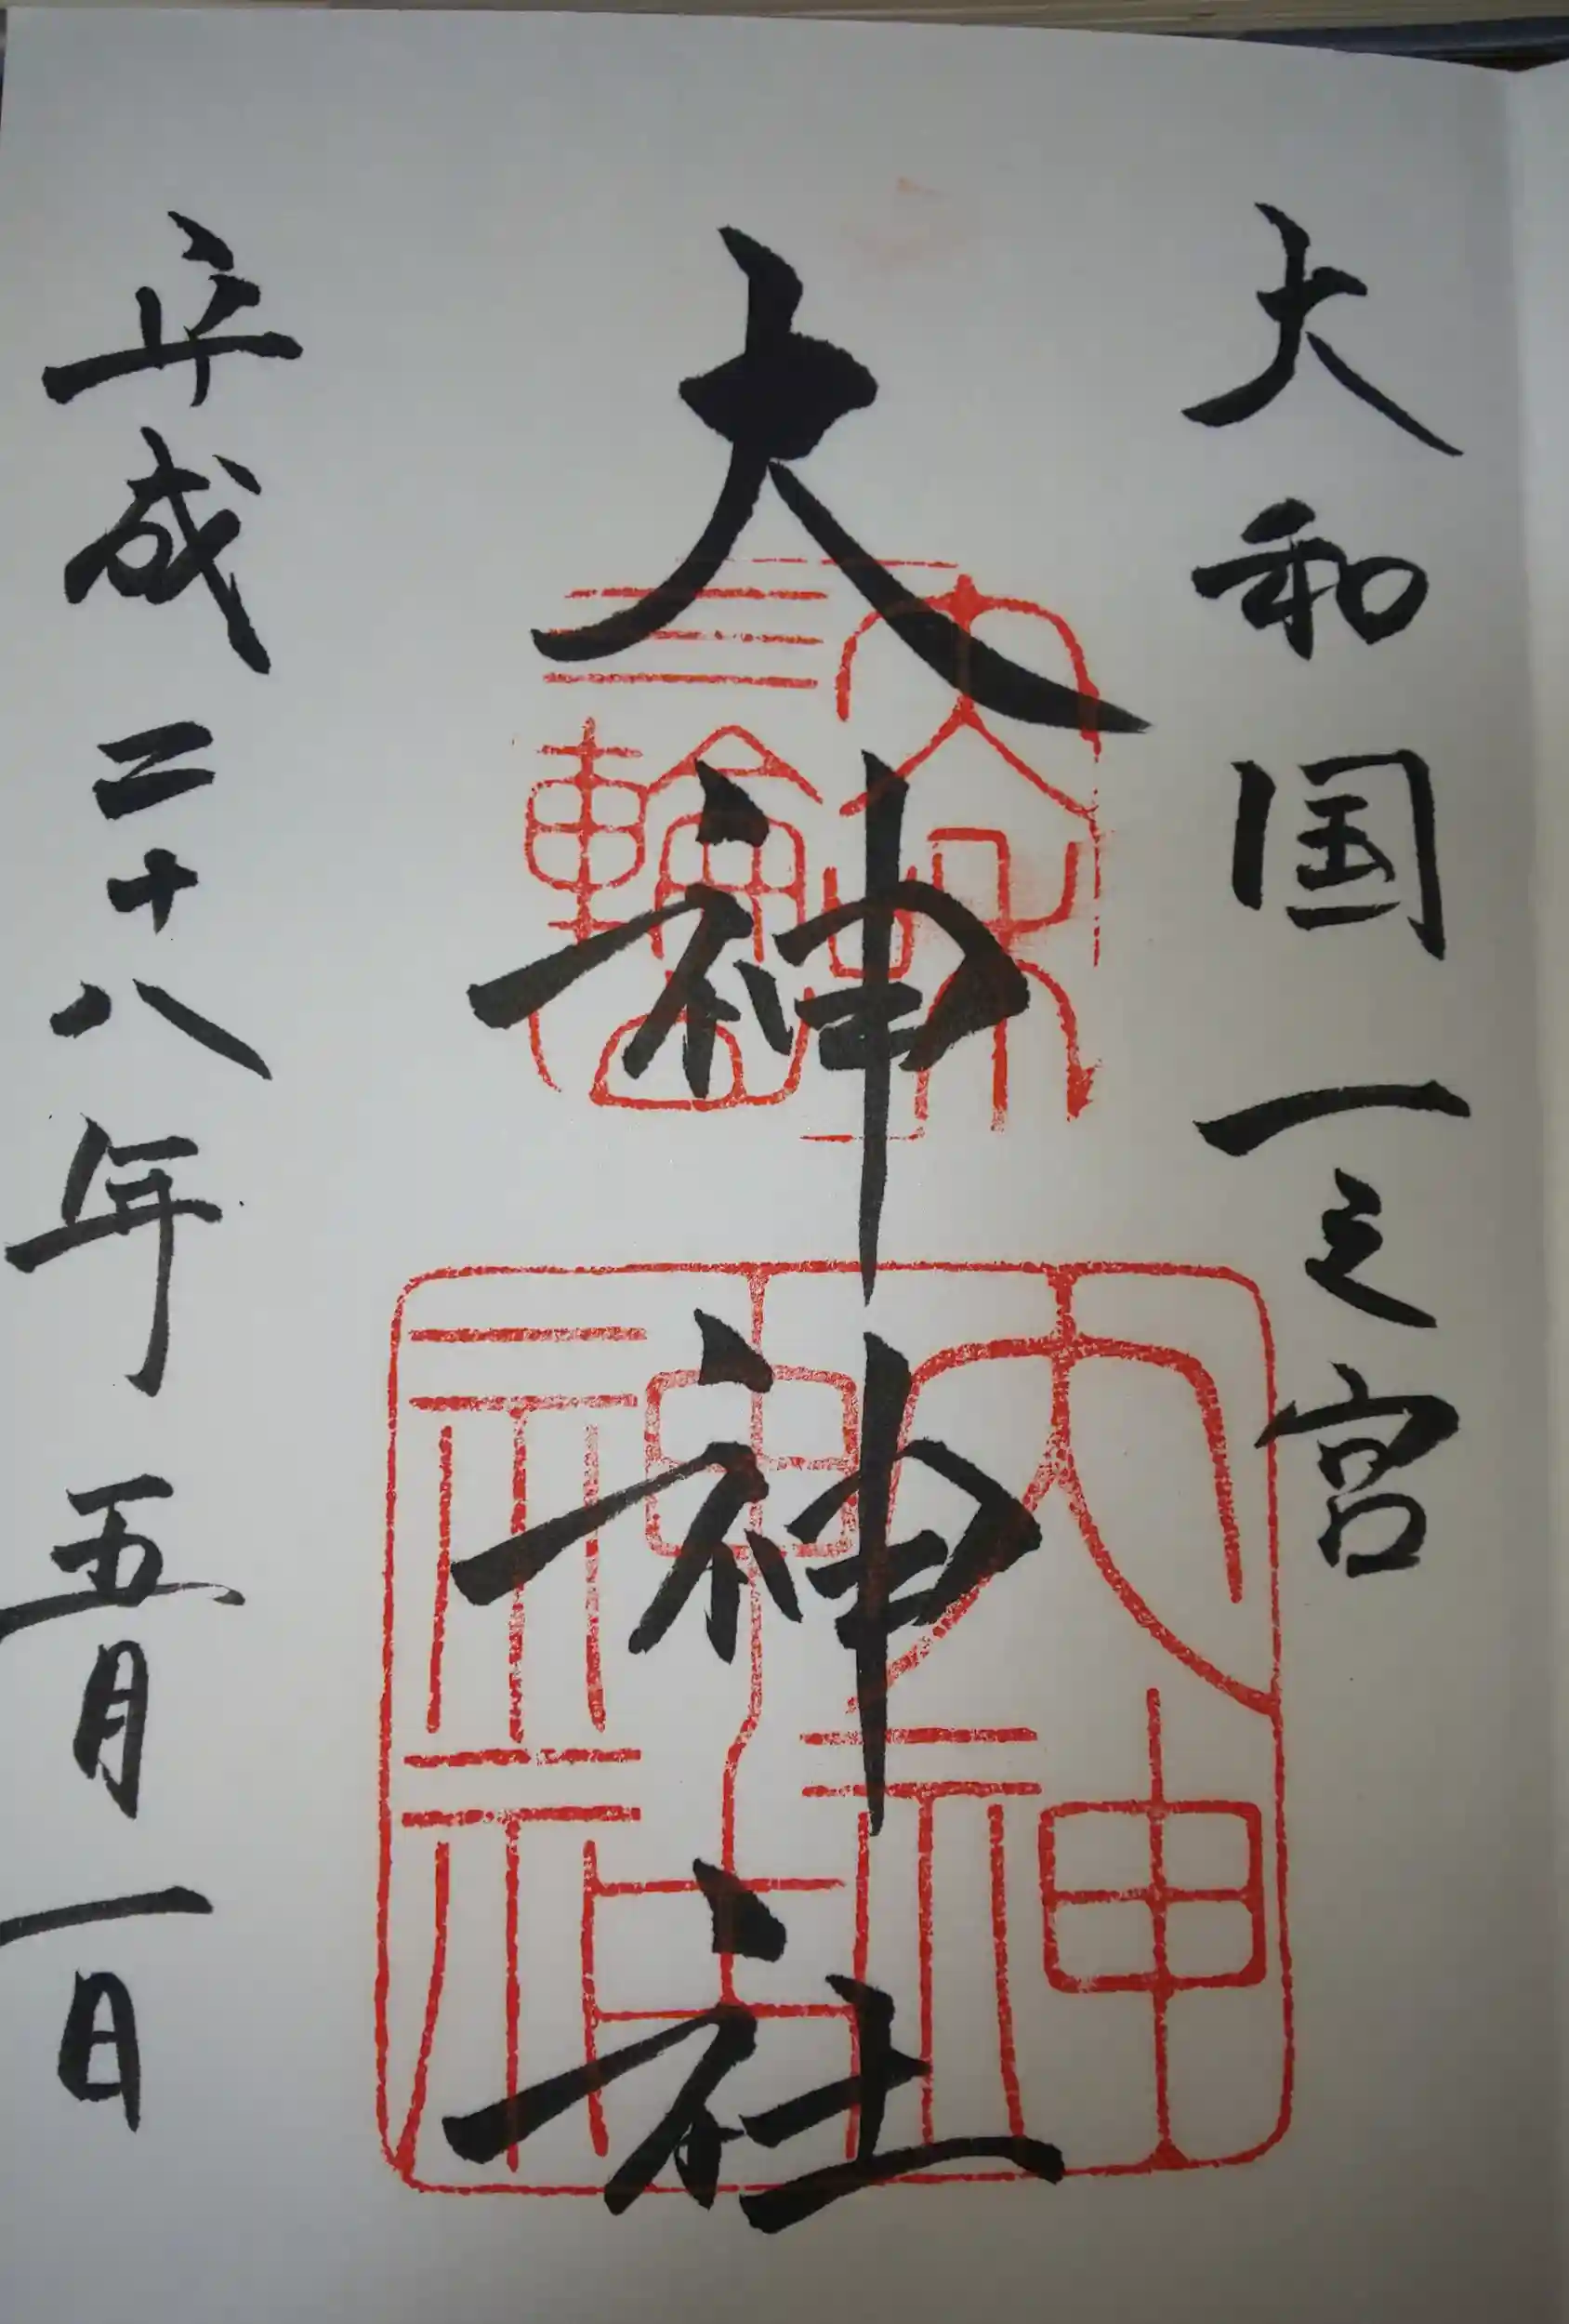 大和国一之宮
大神神社
平成二十八年五月一日
大和
三輪山
大神
神社